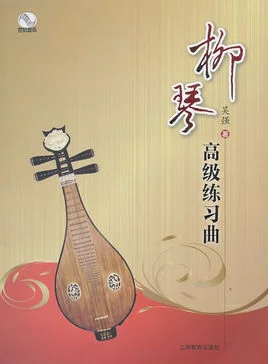 世纪音乐
柳琴
吴强 著
高级练习曲
上海教育出版社